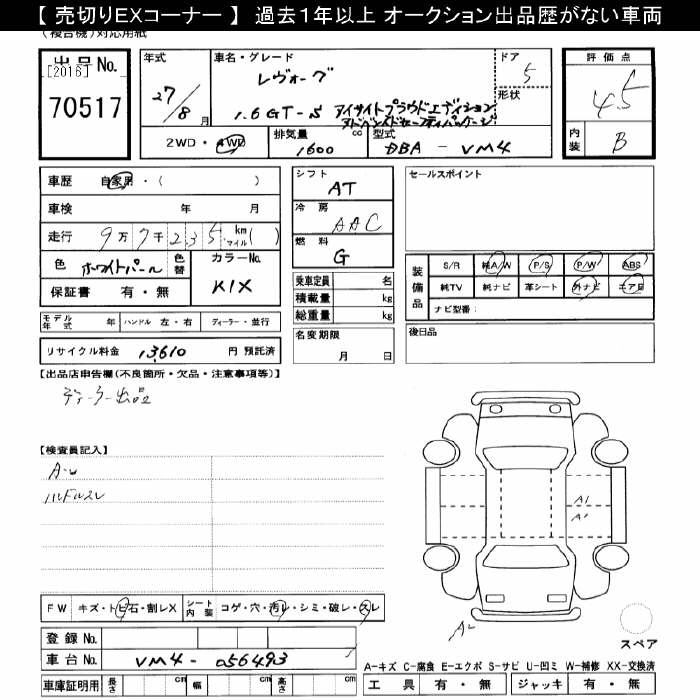 【 売切りEXコーナー 】 過去1年以上 オークション出品歴がない車両
(複合機)対応用紙
出品 No.
[2016]
70517
年式
27/8月
車名・グレード
レヴォーグ
1.6 GT-S アイサイトプラウドエディション
アドバンスドセーフティパッケージ
ドア
5
形状
評価点
4.5
内装
B
2WD・4WD
排気量
1600 cc
型式
DBA - VM4
車歴 自家用・( )
車検 年 月
走行 9万7千235 km マイル( )
色 ホワイトパール 色替
カラーNo.
K1X
保証書 有・無
モデル年式 年 ハンドル 左・右 ディーラー・並行
リサイクル料金 13,610 円 預託済
シフト
AT
冷房
AAC
燃料
G
乗車定員 名
積載量 kg
総重量 kg
名変期限
月 日
セールスポイント
装備品
S/R 純A/W P/S P/W ABS
純TV 純ナビ 革シート 外ナビ エアB
ナビ型番:
後日品
【出品店申告欄(不良箇所・欠品・注意事項等)】
ディーラー出品
【検査員記入】
A-U
ハンドルスレ
A1
A1
A2
スペア
FW キズ・トビ石・割レX シート内装 コゲ・穴・汚レ・シミ・破レ・スレ
登録 No.
車台 No. VM4 - 056493
車庫証明用 長さ cm 幅 cm 高さ cm
A-キズ C-腐食 E-エクボ S-サビ U-凹ミ W-補修 XX-交換済
工具 有・無 ジャッキ 有・無